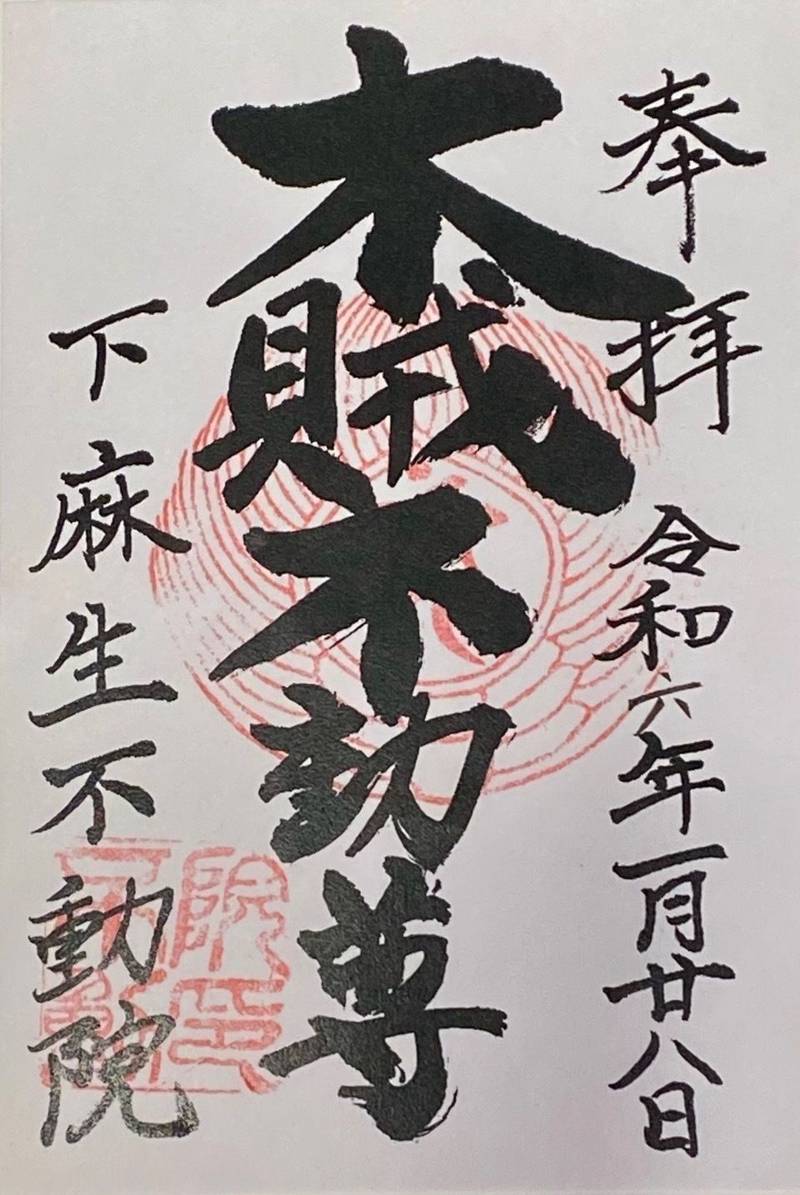 奉拝 令和六年一月廿八日
木賊不動尊
下麻生不動院